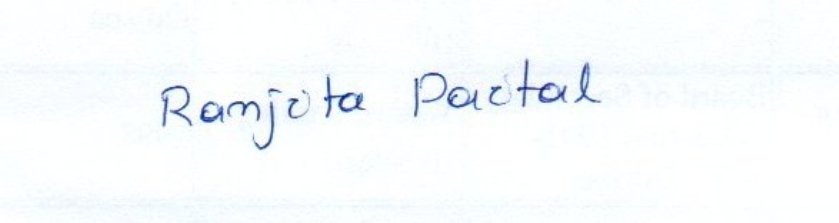 Ranjita Paital